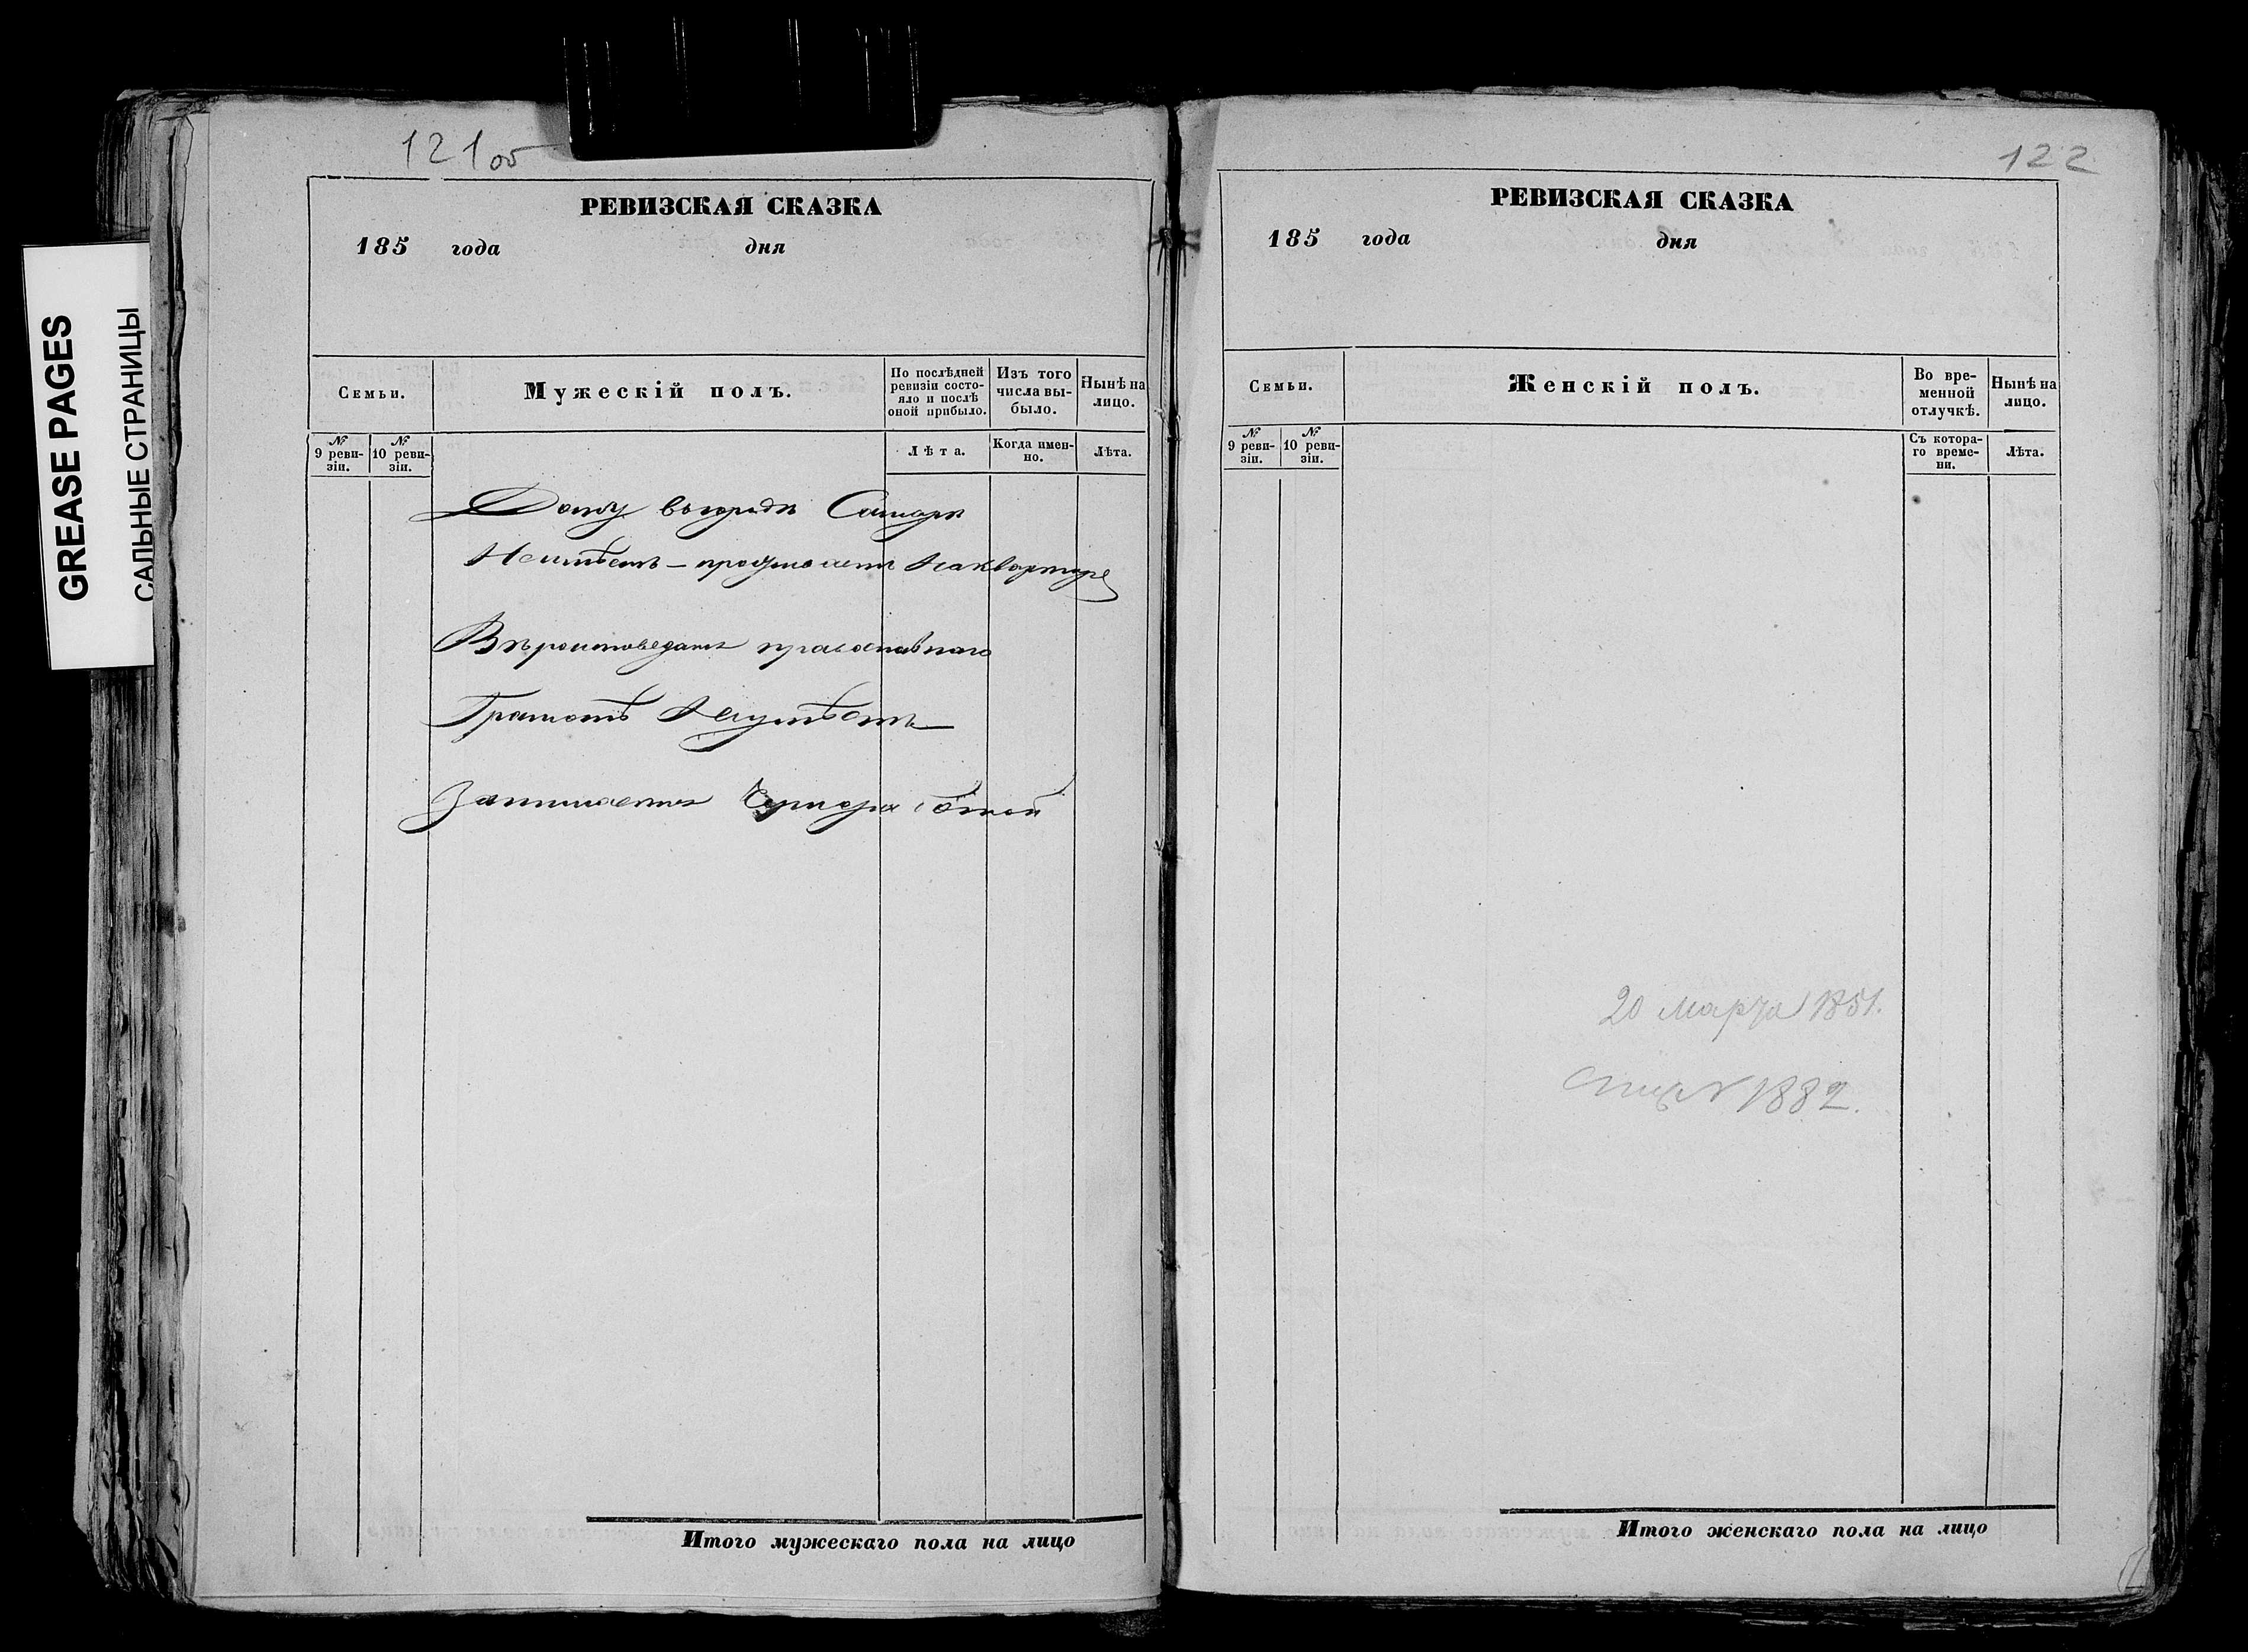 GREASE PAGES
САЛЬНЫЕ СТРАНИЦЫ
121об
РЕВИЗСКАЯ СКАЗКА
185 года дня
Семьи.
Мужескій полъ.
По послѣдней
ревизіи состо-
яло и послѣ
оной прибыло.
Изъ того
числа вы-
было.
Нынѣ на
лицо.
№
9 реви-
зіи.
№
10 реви-
зіи.
Лѣта.
Когда имен-
но.
Лѣта.
Дому въ городѣ Самарѣ
Неимѣетъ – проживаетъ на квартире
Вѣроисповеданія православнаго
Грамотѣ Неумѣетъ
Занимается Чернора ботой
Итого мужескаго пола на лицо
122
РЕВИЗСКАЯ СКАЗКА
185 года дня
Семьи.
Женскій полъ.
Во вре-
менной
отлучкѣ.
Нынѣ на
лицо.
№
9 реви-
зіи.
№
10 реви-
зіи.
Съ котора-
го време-
ни.
Лѣта.
20 Марта 1851.
1882.
Итого женскаго пола на лицо